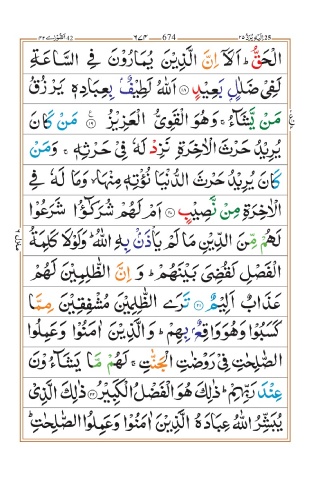 الْحَقُّ ؕ اَلَاۤ اِنَّ الَّذِیْنَ یُمَارُوْنَ فِی السَّاعَةِ
لَفِیْ ضَلٰلٍۭ بَعِیْدٍ ۱۸ اَللّٰهُ لَطِیْفٌۢ بِعِبَادِهٖ یَرْزُقُ
مَنْ یَّشَآءُ ۚ وَهُوَ الْقَوِیُّ الْعَزِیْزُ ۱۹ مَنْ كَانَ
یُرِیْدُ حَرْثَ الْاٰخِرَةِ نَزِدْ لَهٗ فِیْ حَرْثِهٖ ۚ وَمَنْ
كَانَ یُرِیْدُ حَرْثَ الدُّنْیَا نُؤْتِهٖ مِنْهَا ۙ وَمَا لَهٗ فِی
الْاٰخِرَةِ مِنْ نَّصِیْبٍ ۲۰ اَمْ لَهُمْ شُرَكٰٓؤُا شَرَعُوْا
لَهُمْ مِّنَ الدِّیْنِ مَا لَمْ یَاْذَنْۢ بِهِ اللّٰهُ ؕ وَلَوْلَا كَلِمَةُ
الْفَصْلِ لَقُضِیَ بَیْنَهُمْ ؕ وَ اِنَّ الظّٰلِمِیْنَ لَهُمْ
عَذَابٌ اَلِیْمٌ ۲۱ تَرَی الظّٰلِمِیْنَ مُشْفِقِیْنَ مِمَّا
كَسَبُوْا وَهُوَ وَاقِعٌۢ بِهِمْ ؕ وَالَّذِیْنَ اٰمَنُوْا وَعَمِلُوا
الصّٰلِحٰتِ فِیْ رَوْضٰتِ الْجَنّٰتِ ۚ لَهُمْ مَّا یَشَآءُوْنَ
عِنْدَ رَبِّهِمْ ؕ ذٰلِكَ هُوَ الْفَضْلُ الْكَبِیْرُ ۲۲ ذٰلِكَ الَّذِیْ
یُبَشِّرُ اللّٰهُ عِبَادَهُ الَّذِیْنَ اٰمَنُوْا وَعَمِلُوا الصّٰلِحٰتِ ؕ